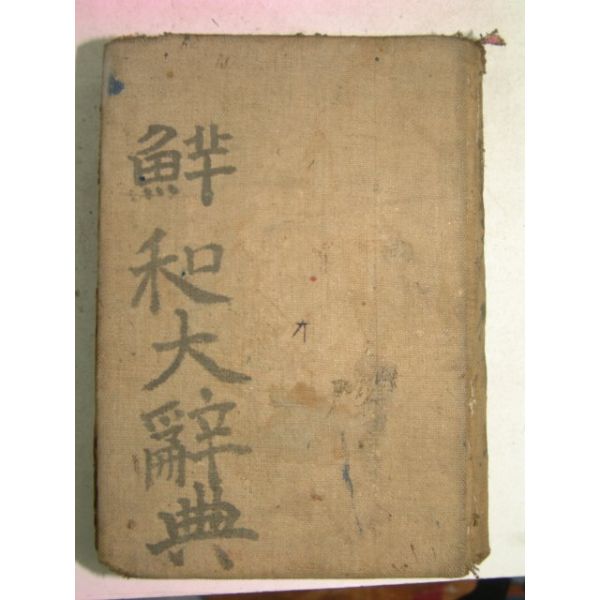 鮮和大辭典